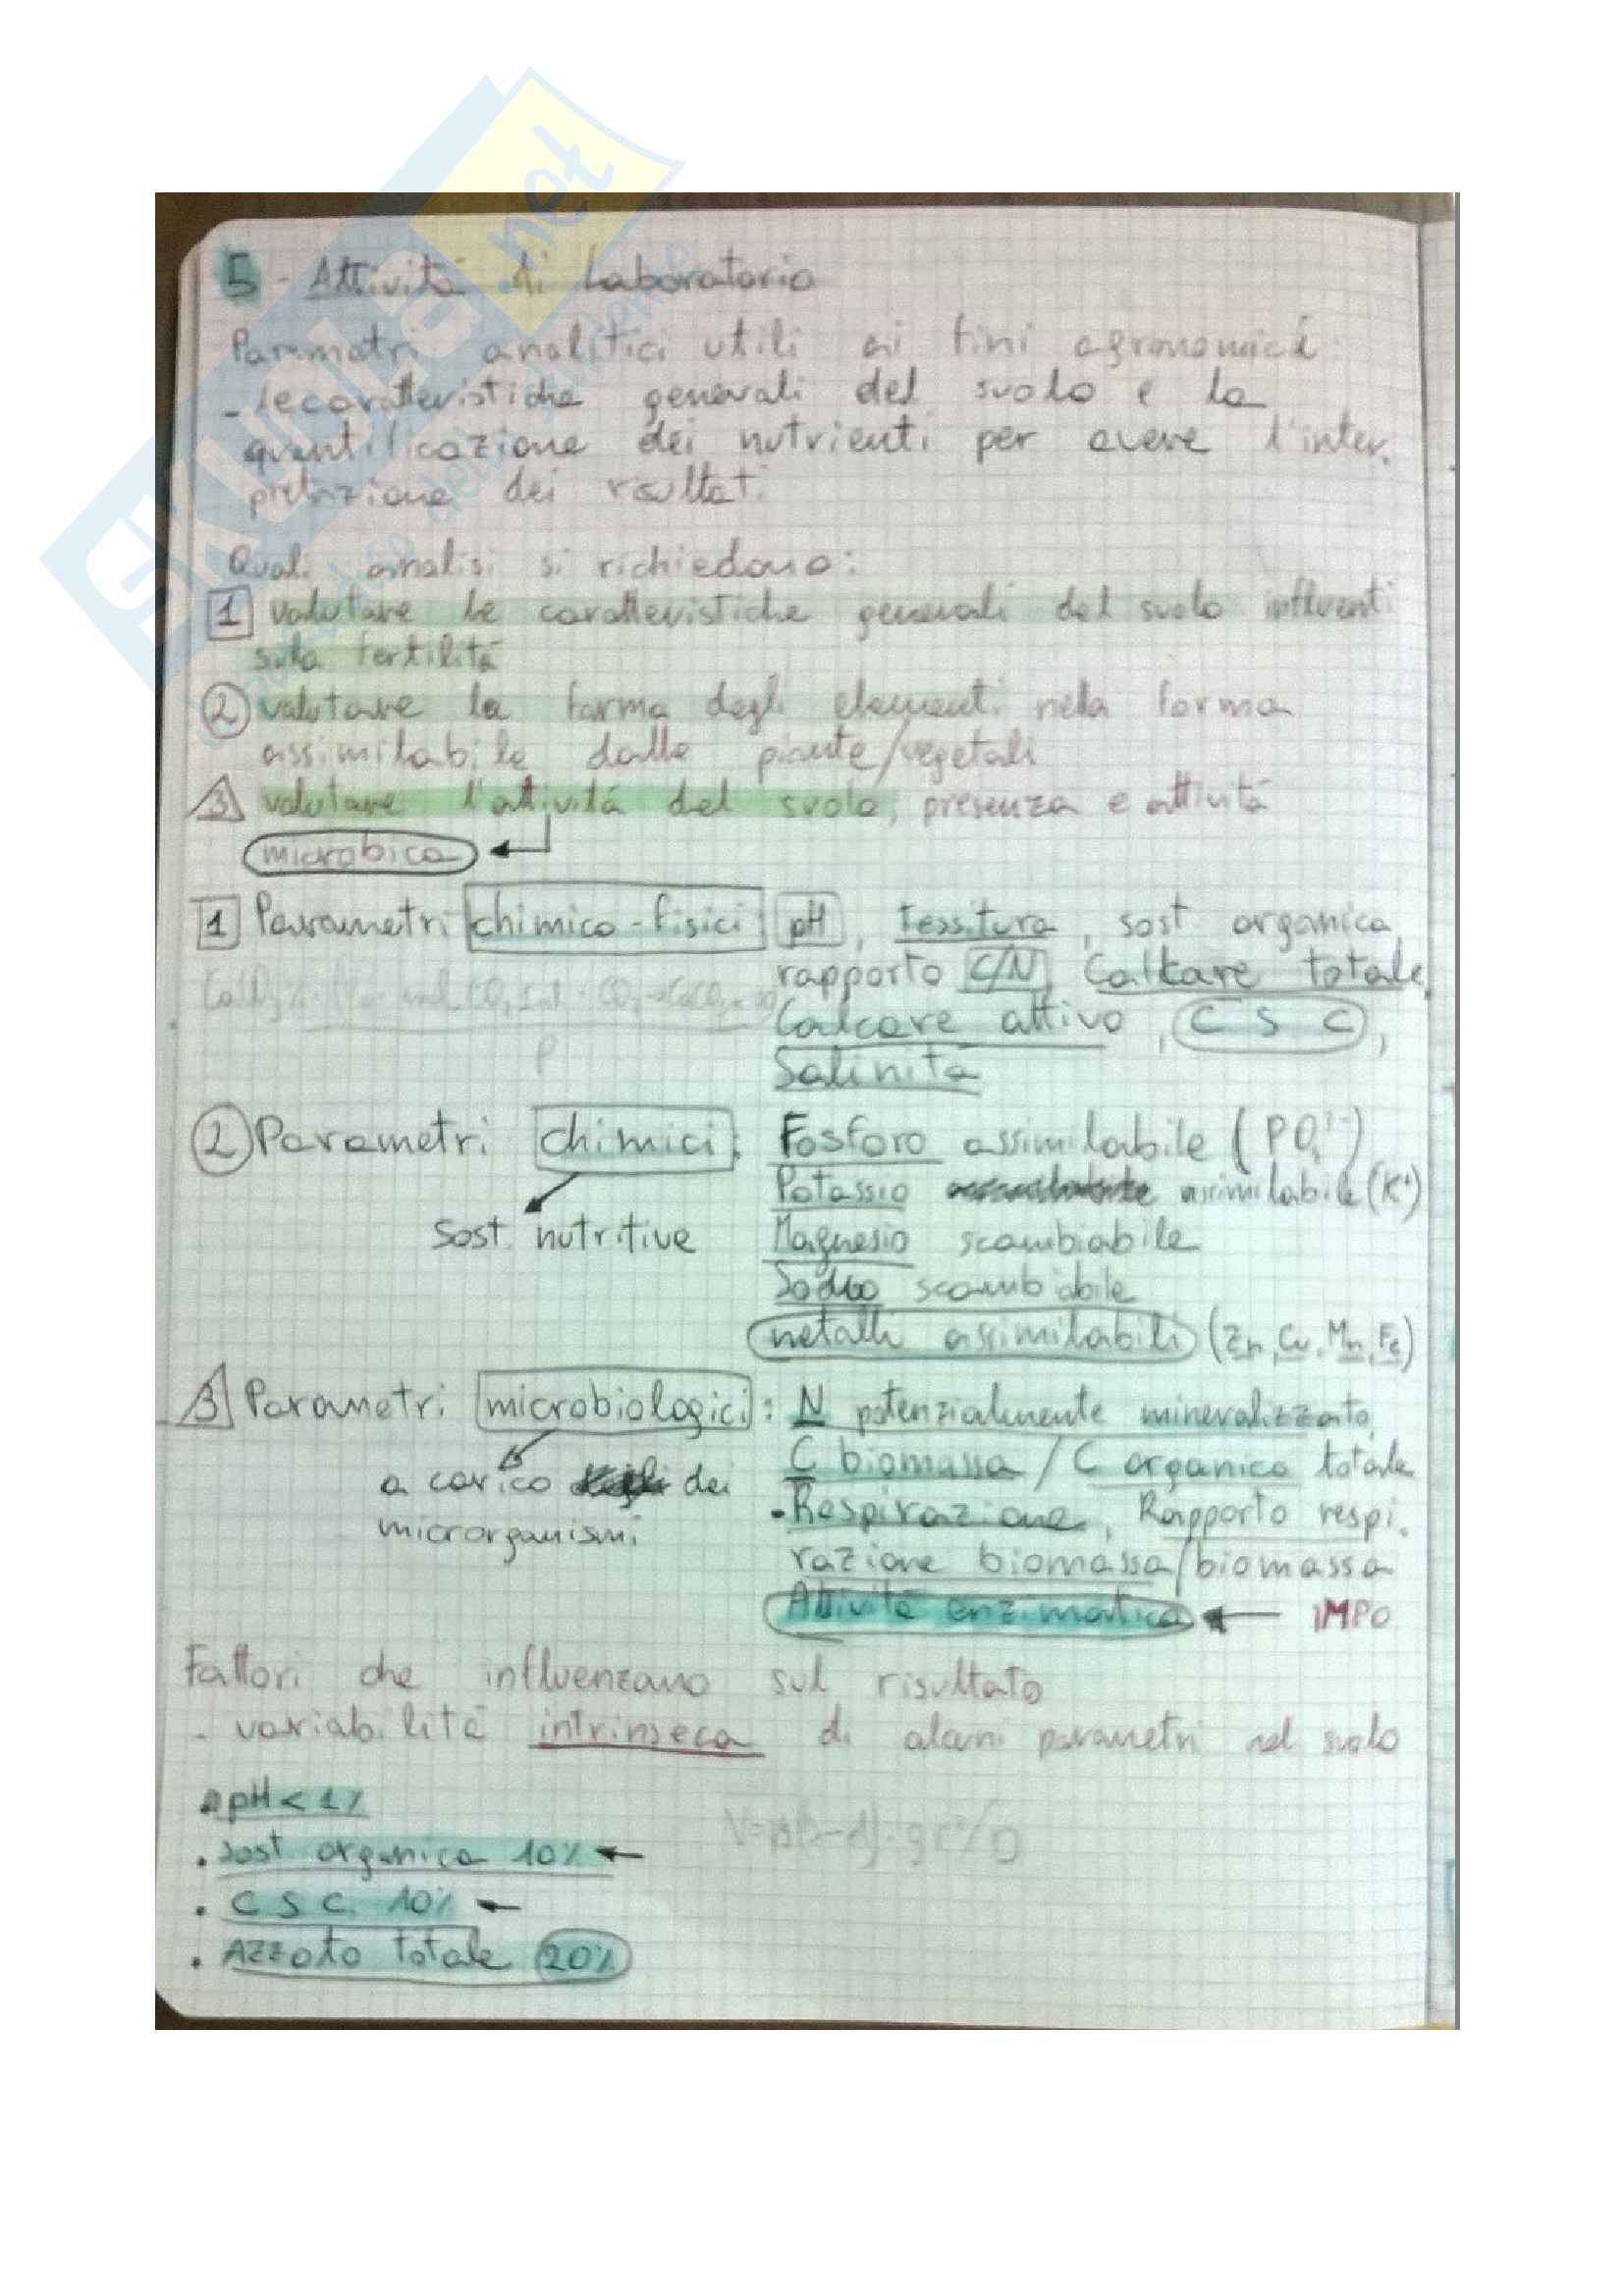 5 - Attività di Laboratorio
Parametri analitici utili ai fini agronomici:
- le caratteristiche generali del suolo e la
quantificazione dei nutrienti per avere l'inter.
pretazione dei risultati
Quali analisi si richiedono:
1 valutare le caratteristiche generali del suolo influenti
sulla fertilità
2 valutare la forma degli elementi nella forma
assimilabile dalle piante/vegetali
3 valutare l'attività del suolo, presenza e attività
microbica
1 Parametri chimico-fisici: pH, tessitura, sost organica,
rapporto C/N, Calcare totale,
Calcare attivo, C S C,
Salinità
2 Parametri chimici: Fosforo assimilabile (PO₄³⁻)
Potassio assimilabile (K⁺)
sost. nutritive Magnesio scambiabile
Sodio scambiabile
metalli assimilabili (Zn, Cu, Mn, Fe)
3 Parametri microbiologici: N potenzialmente mineralizzato,
C biomassa / C organico totale
a carico dei
• Respirazione, Rapporto respi.
microrganismi
razione biomassa/biomassa
Attività enzimatica ← IMPO
Fattori che influenzano sul risultato
- variabilità intrinseca di alcuni parametri nel suolo
• pH < 1%
• Sost organica 10% ←
• C S C. 10% ←
• Azzoto totale 20%
SKUOLA.net